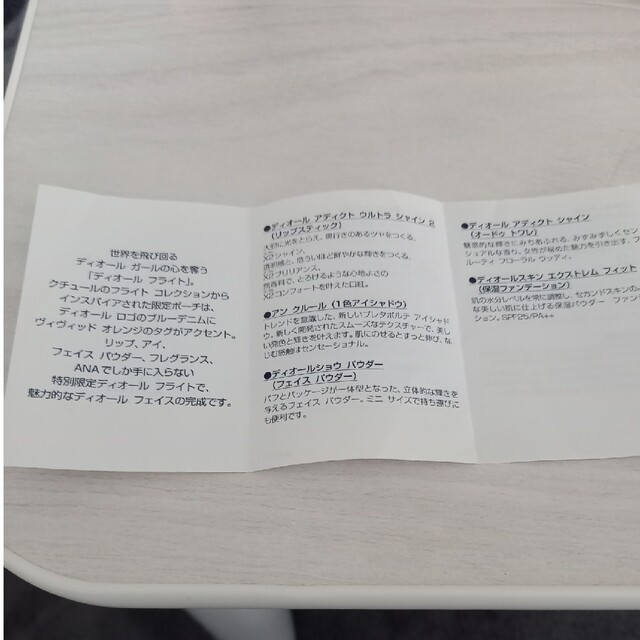 世界を飛び回る
ディオール ガールの心を奪う
「ディオール フライト」。
クチュールのフライト コレクションから
インスパイアされた限定ポーチは、
ディオール ロゴのブルーデニムに
ヴィヴィッド オレンジのタグがアクセント。
リップ、アイ、
フェイス パウダー、フレグランス、
ANAでしか手に入らない
特別限定ディオール フライトで、
魅力的なディオール フェイスの完成です。
●ディオール アディクト ウルトラ シャイン 2
(リップスティック)
大胆に光をとらえ、奥行きのあるツヤをつくる、
X2シャイン。
透明感と、危ういほど鮮やかな輝きをつくる、
X2ブリリアンス。
無香料で、とろけるような心地よさの
X2コンフォートを叶えた口紅。
●アン クルール (1色アイシャドウ)
トレンドを意識した、新しいプレタポルテ アイシャド
ウ。新しく開発されたスムーズなテクスチャーで、美し
い発色と輝きを叶えます。肌にのせるとすっと伸び、な
じむ感触はセンセーショナル。
●ディオールショウ パウダー
(フェイス パウダー)
パフとパッケージが一体型となった、立体的な輝きを
与えるフェイス パウダー。ミニ サイズで持ち運びに
も便利です。
●ディオール アディクト シャイン
(オードゥ トワレ)
魅惑的な輝きにみちあふれる、みずみずしくセン
シュアルな香り。女性が秘めた魅力を引き出す、フ
ルーティ フローラル ウッディ。
●ディオールスキン エクストレム フィット
(保湿ファンデーション)
肌の水分レベルを常に調整し、セカンドスキンの
な美しい肌に仕上げる保湿パウダー ファン
ション。SPF25/PA++